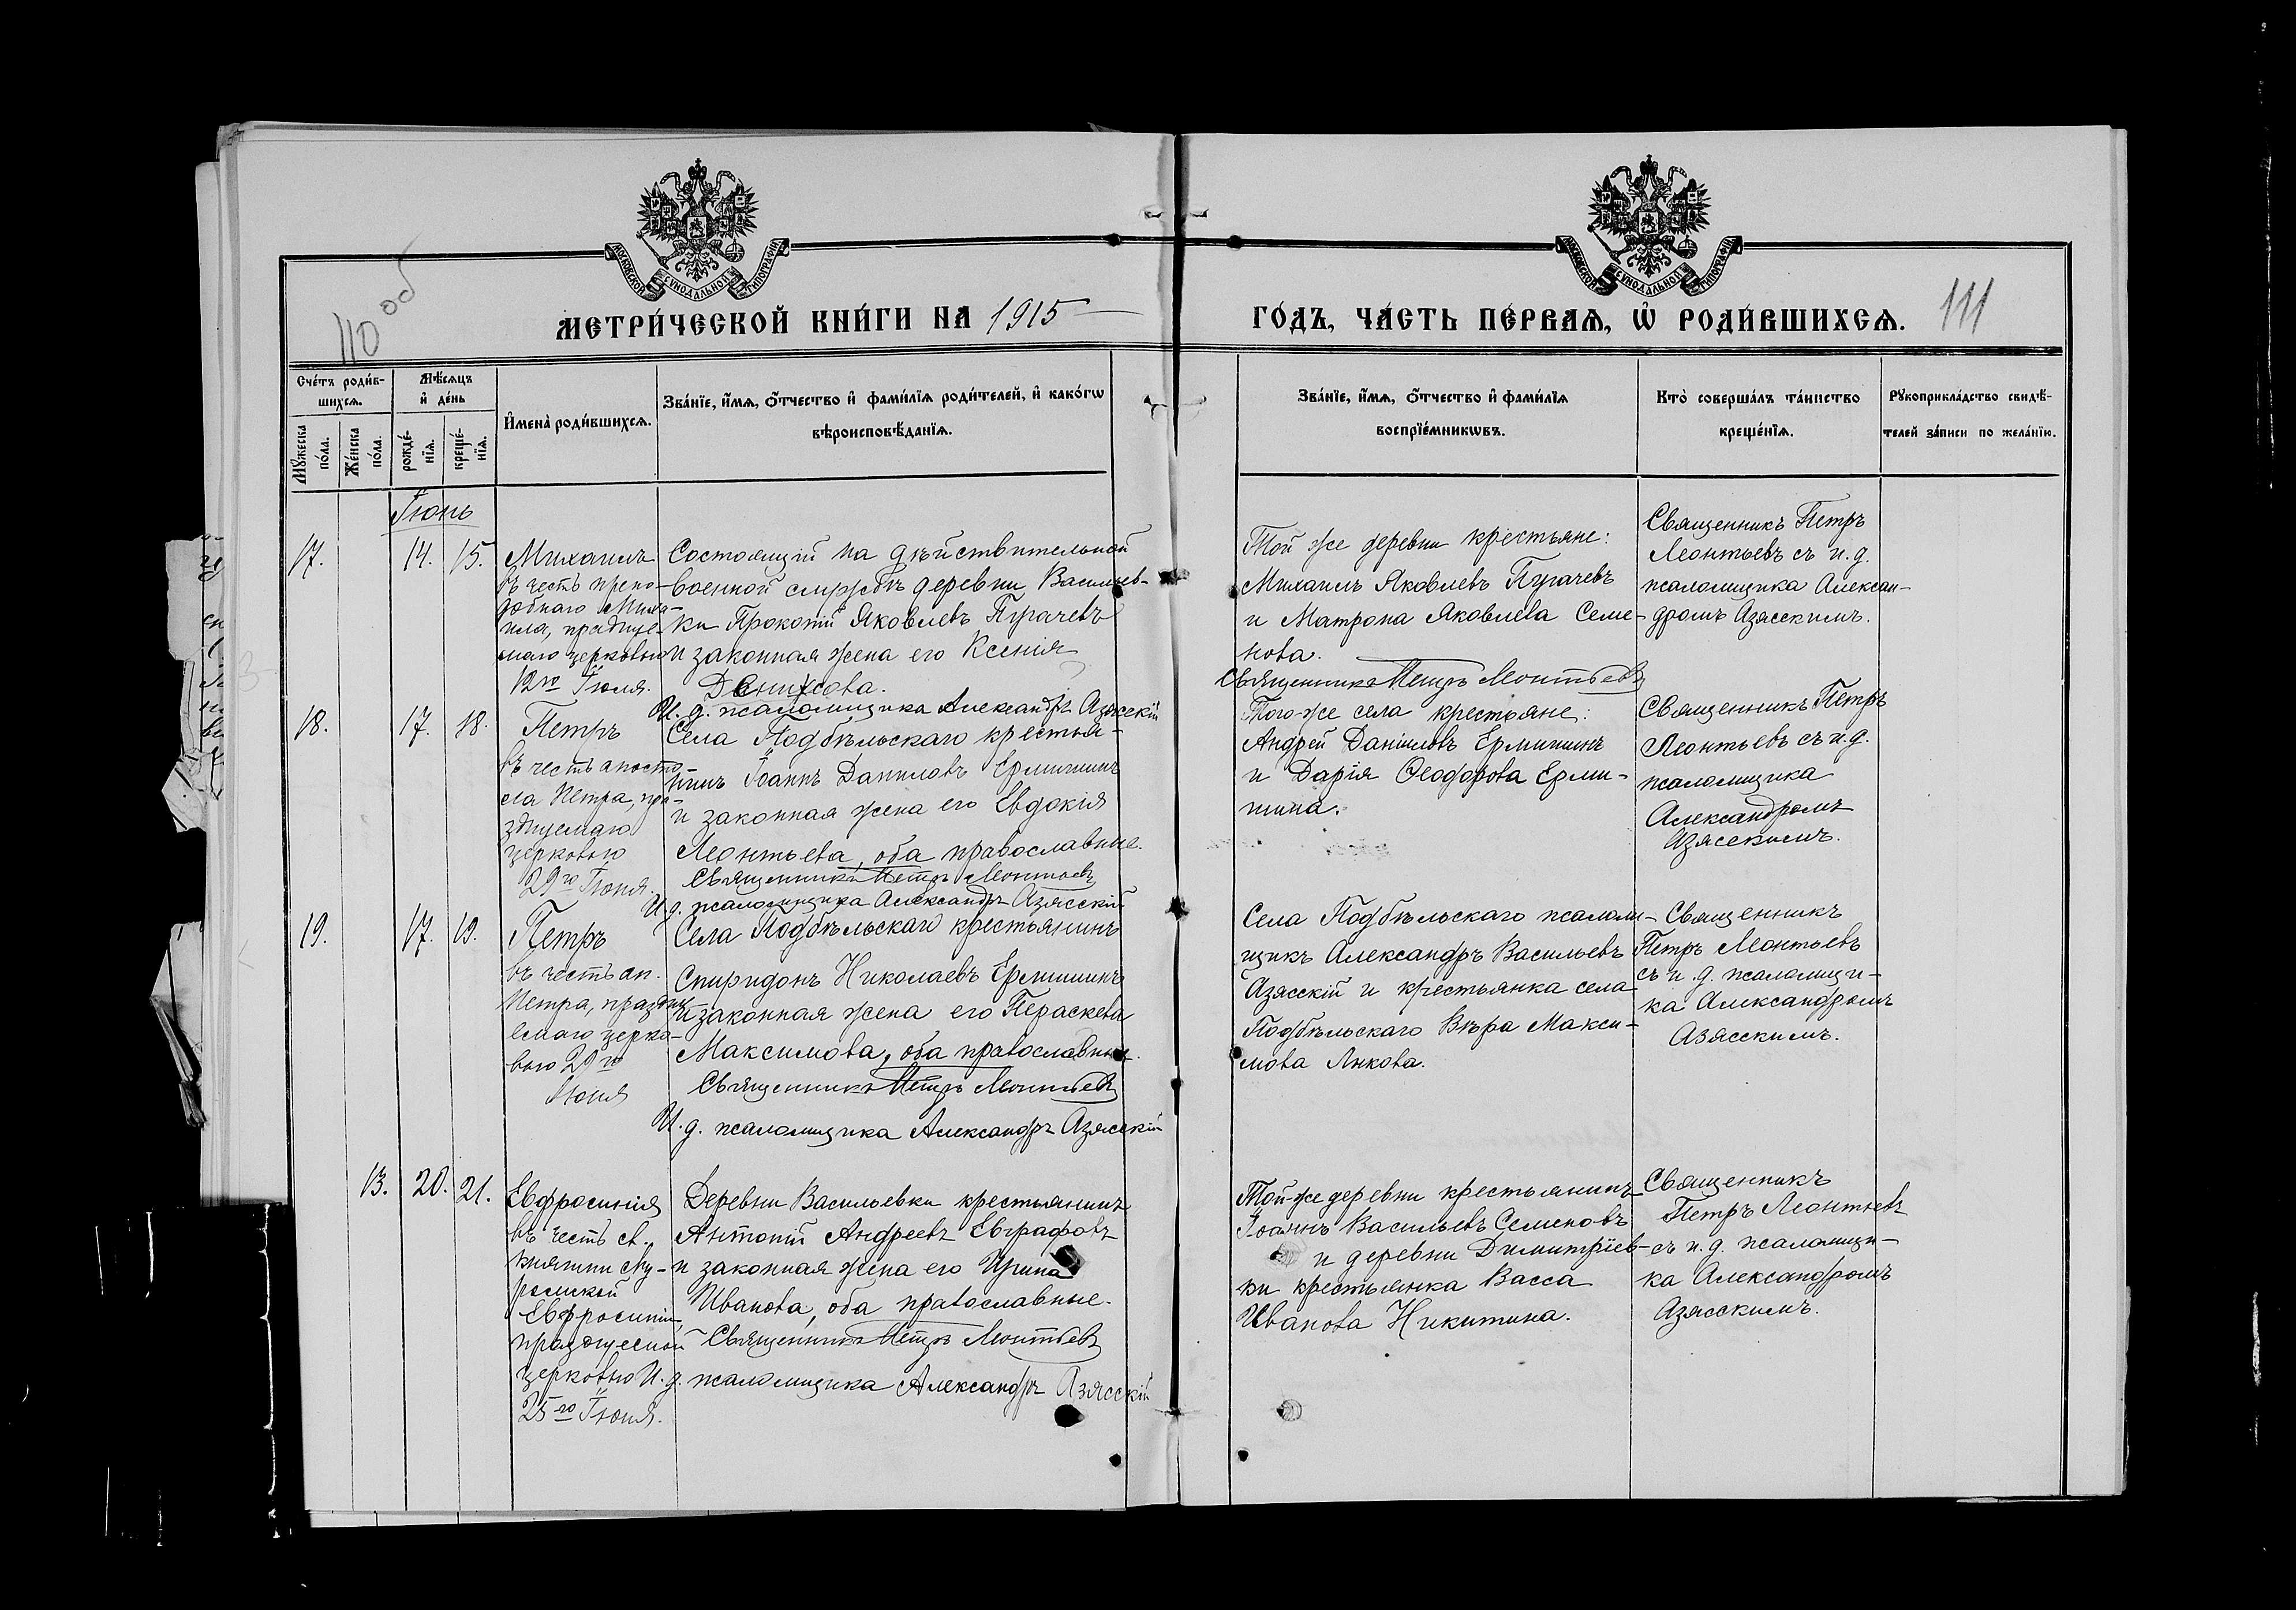 МОСКОВСКОЙ СѴНОДАЛЬНОЙ ТИПОГРАФІИ
МОСКОВСКОЙ СѴНОДАЛЬНОЙ ТИПОГРАФІИ
110 об
МЕТРИ́ЧЕСКОЙ КНИ́ГИ НА 1915
ГО́ДЪ, ЧА́СТЬ ПЕ́РВАѦ, Ѡ҆ РОДИ́ВШИХСѦ.
111
Сче́тъ роди́в-
шихсѧ.
Мѣ́сѧцъ
и҆ де́нь
Мꙋ́жеска
по́ла.
Же́нска
по́ла.
рожде́-
нїѧ.
креще́-
нїѧ.
И҆мена̀ роди́вшихсѧ.
Зва́нїе, и҆́мѧ, ѻ҆́тчество и҆ фами́лїѧ роди́телей, и҆ како́гѡ
вѣроисповѣ́данїѧ.
Зва́нїе, и҆́мѧ, ѻ҆́тчество и҆ фами́лїѧ
воспрїе́мникѡвъ.
Кто̀ соверша́лъ та́инство
креще́нїѧ.
Рꙋкоприкла́дство свидѣ́-
телей за́писи по жела́нїю.
Іюнь
17.
14.
15.
Михаилъ
въ честь препо-
добнаго Миха-
ила, праздуе-
маго церковью
12го Іюля.
Состоящій на дѣйствительной
военной службѣ деревни Васильев-
ки Прокопій Яковлевъ Пугачевъ
и законная жена его Ксенія
Денисова.
И. д. псаломщика Александръ Азясскій
Той же деревни крестьяне:
Михаилъ Яковлевъ Пугачевъ
и Матрона Яковлева Семе-
нова.
Священникъ Петръ Леонтьевъ
Священникъ Петръ
Леонтьевъ съ и. д.
псаломщика Алексан-
дромъ Азясскимъ.
18.
17.
18.
Петръ
въ честь апосто-
ла Петра, пра-
зднуемаго
церковью
29го Іюня.
Села Подбѣльскаго крестья-
нинъ Іоаннъ Даниловъ Ермишинъ
и законная жена его Евдокія
Леонтьева, оба православные.
Священникъ Петръ Леонтьевъ
И. д. псаломщика Александръ Азясскій
Того-же села крестьяне:
Андрей Даніиловъ Ермишинъ
и Дарія Ѳеодорова Ерми-
шина.
Священникъ Петръ
Леонтьевъ съ и. д.
псаломщика
Александромъ
Азясскимъ.
19.
17.
19.
Петръ
въ честь ап.
Петра, праздну
емаго церко-
вью 29го
Іюня
Села Подбѣльскаго крестьянинъ
Спиридонъ Николаевъ Ермишинъ
и законная жена его Пераскева
Максимова, оба православные.
Священникъ Петръ Леонтьевъ
И. д. псаломщика Александръ Азясскій
Села Подбѣльскаго псалом-
щикъ Александръ Васильевъ
Азясскій и крестьянка села
Подбѣльскаго Вѣра Макси-
мова Янкова.
Священникъ
Петръ Леонтьевъ
съ и. д. псаломщи-
ка Александромъ
Азясскимъ.
13.
20.
21.
Евфросинія
въ честь св.
княгини Му-
ромской
Евфросиніи,
празднуемой
церковью
25го Іюня.
Деревни Васильевки крестьянинъ
Антоній Андреевъ Евграфовъ
и законная жена его Ирина
Иванова, оба православные.
Священникъ Петръ Леонтьевъ
И. д. псаломщика Александръ Азясскій
Той-же деревни крестьянинъ
Іоаннъ Васильевъ Семеновъ
и деревни Димитріев-
ки крестьянка Васса
Иванова Никитина.
Священникъ
Петръ Леонтьевъ
съ и. д. псаломщи-
ка Александромъ
Азясскимъ.